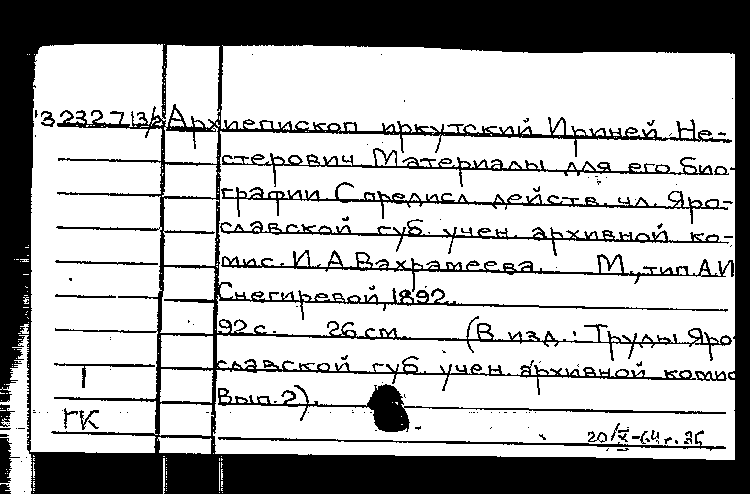 3232713/2 Архиепископ иркутский Ириней Не-
стерович Материалы для его био-
графии С предисл. действ. чл. Яро-
славской губ. учен. архивной ко-
мис. И.А.Вахрамеева. М., тип. А.И
Снегиревой, 1892.
92 с. 26 см. (В изд.: Труды Яро
славской губ. учен. архивной комис
Вып. 2).
1
ГК
20/X-64 г.